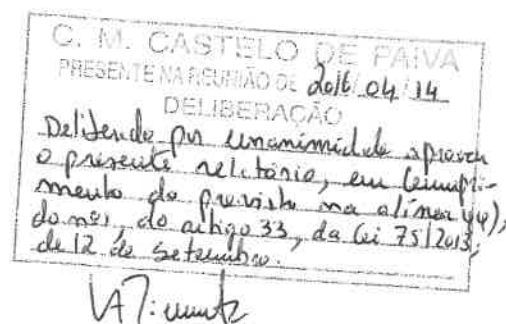 C. M. CASTELO DE PAIVA
PRESENTE NA REUNIÃO DE 2016/04/14
DELIBERAÇÃO
Deliberado por unanimidade aprovar
o presente relatório, em cumpri-
mento do previsto na alínea
do nº1, do artigo 33, da Lei 75/2013,
de 12 de setembro.